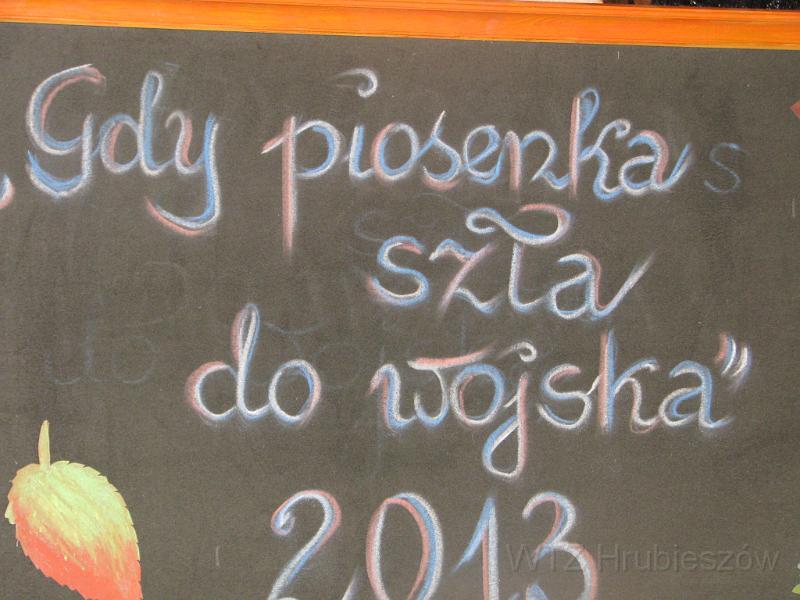 „Gdy piosenka
szła
do wojska”
2013
WTZ Hrubieszów